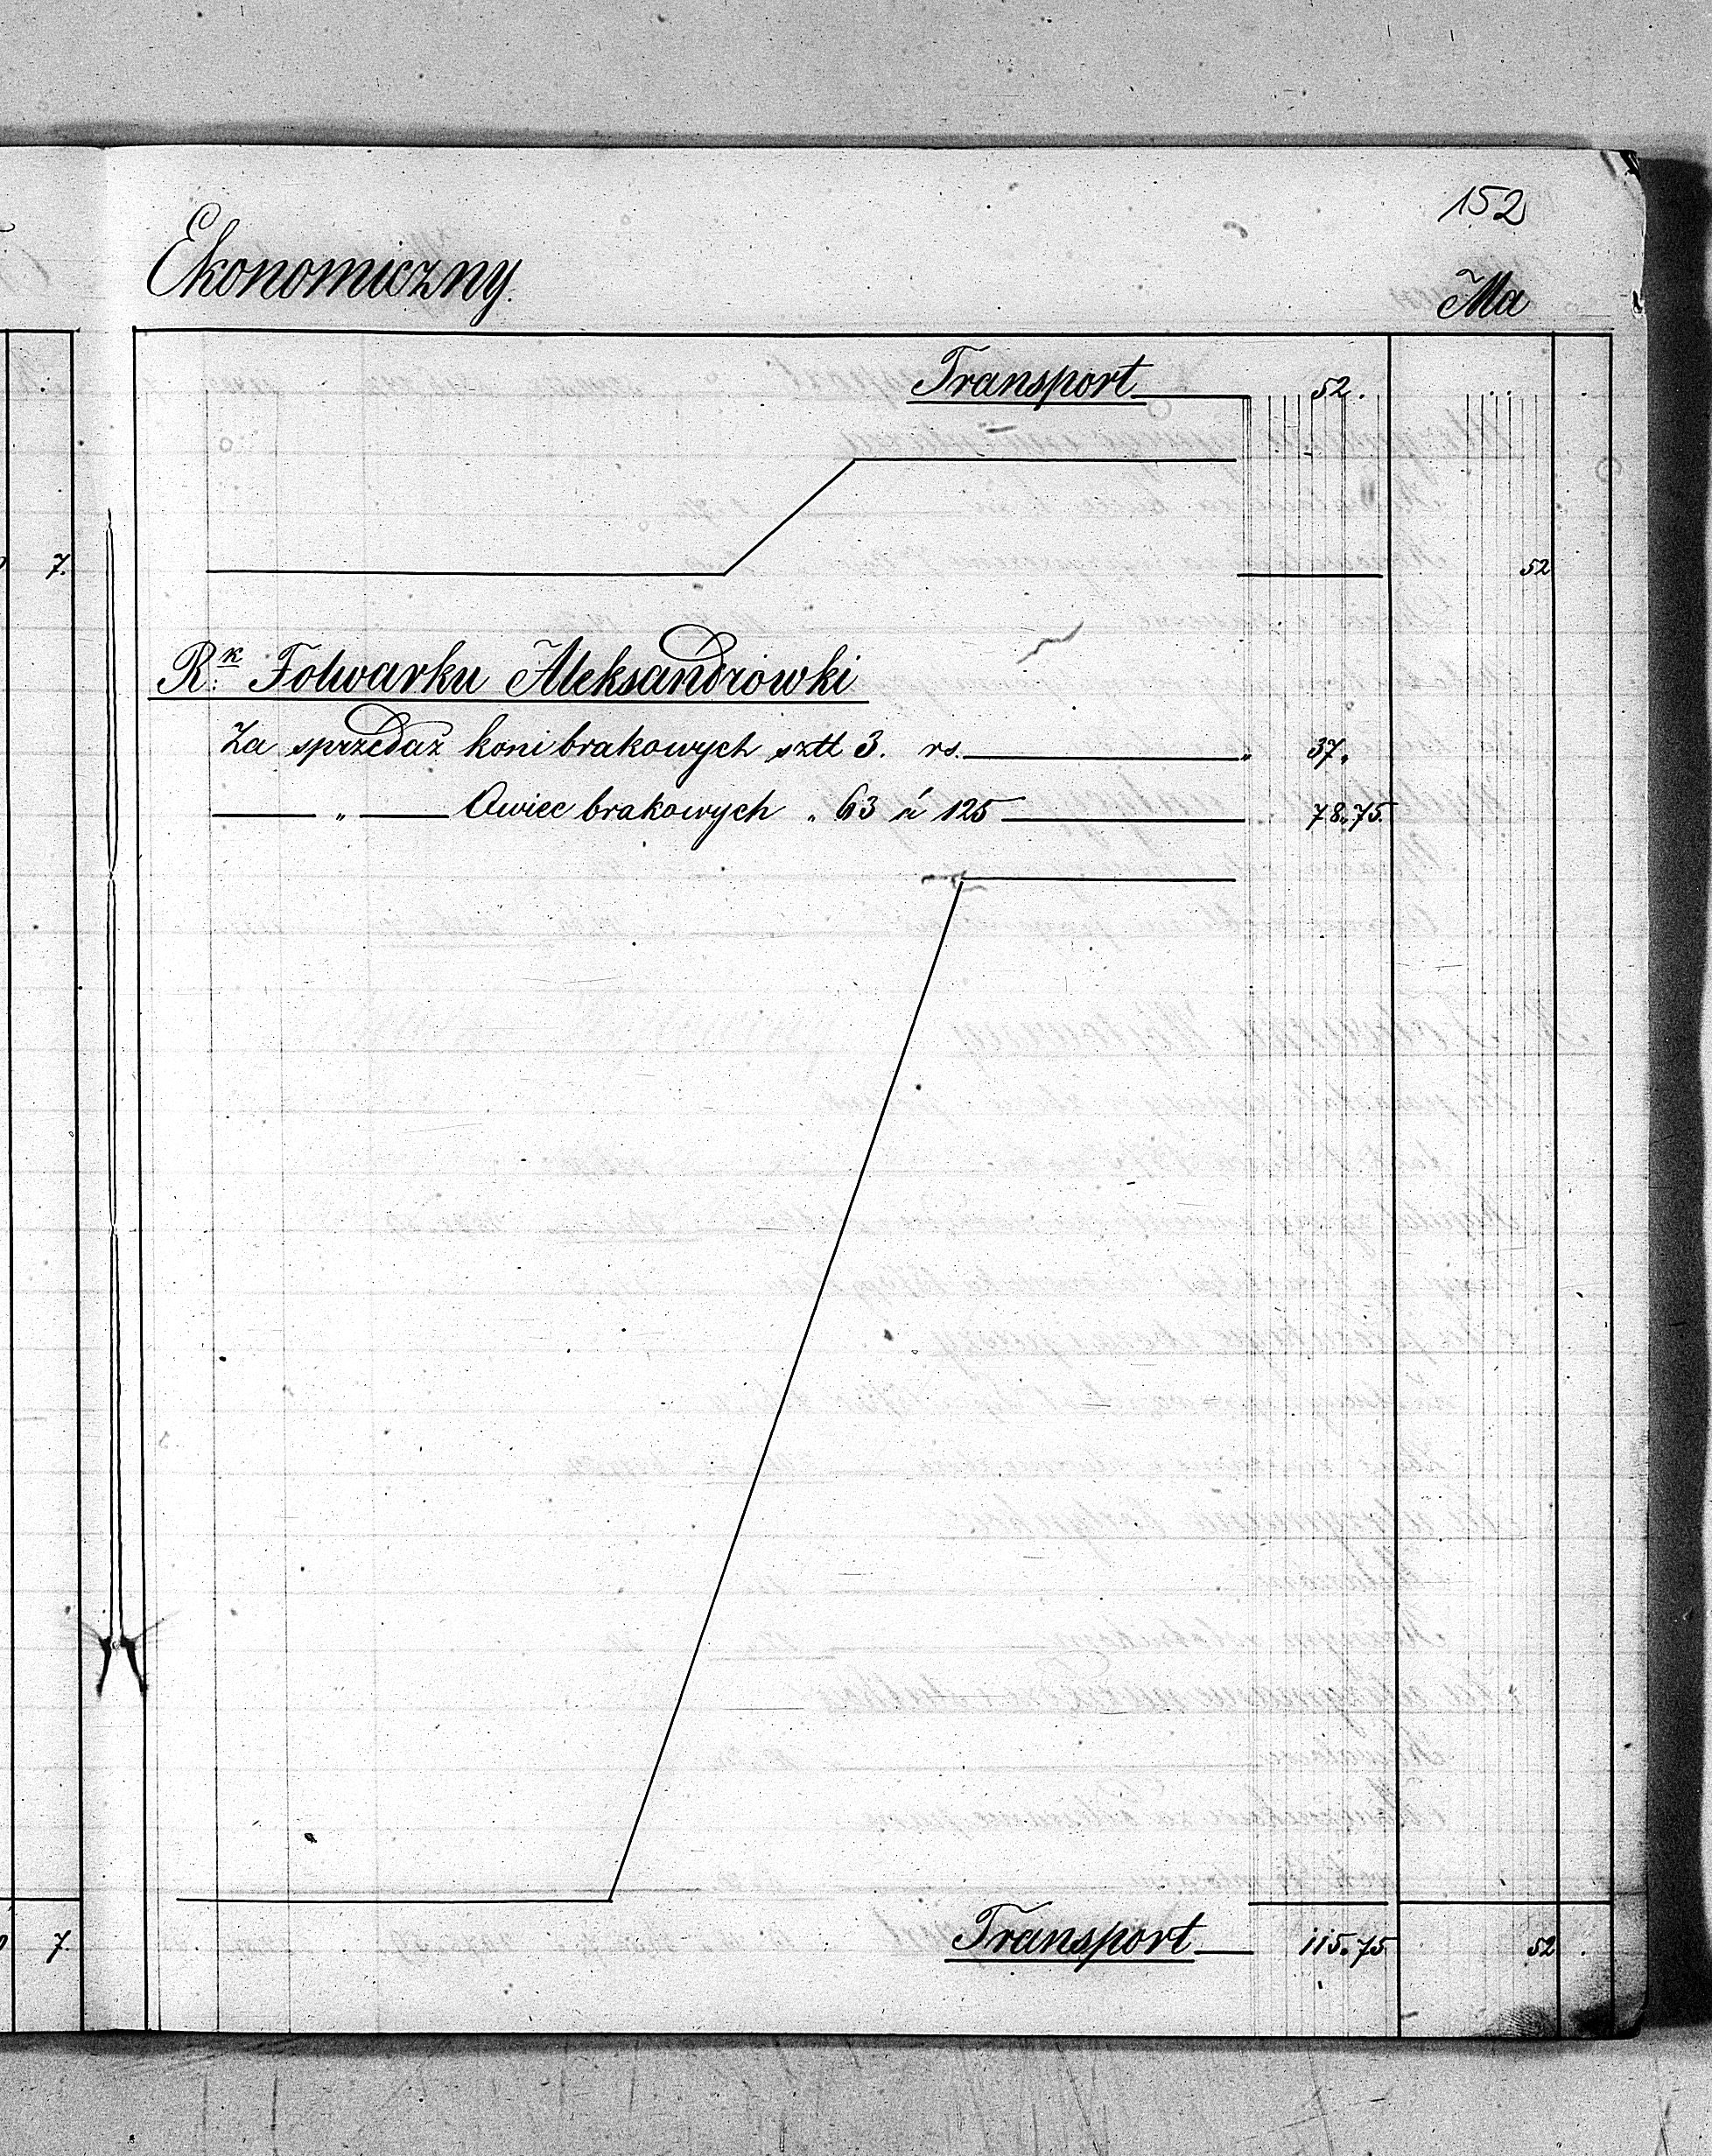 152
Ekonomiczny.
Ma
Transport 52.
7. 52
Rk: Folwarku Aleksandrówki
Za sprzedaż koni brakowych sztt 3. rs. „ 37„
„ Owiec brakowych „ 63 á 125 78„75.
7. Transport 115„75. 52 .